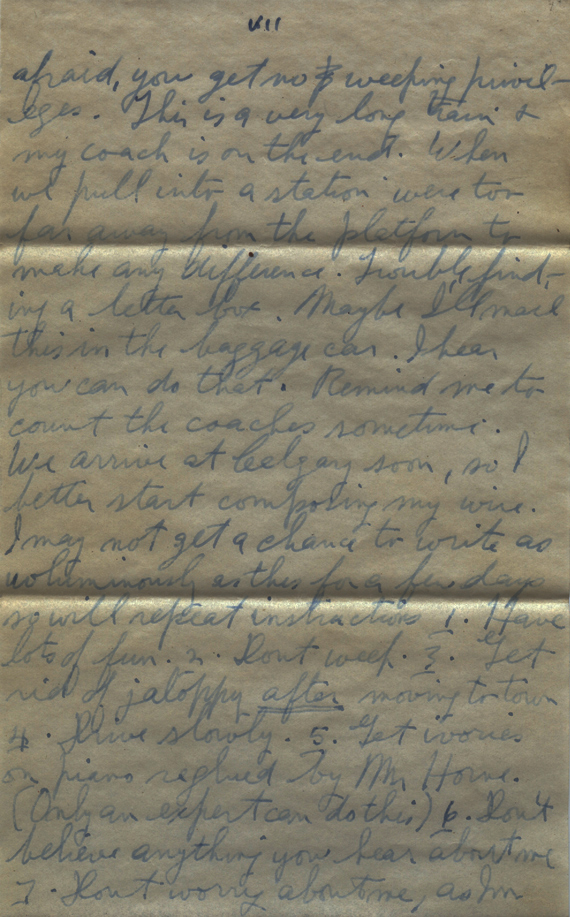 VII
afraid, you get no weeping privil-
eges. This is a very long train &
my coach is on the end. When
we pull into a station were too
far away from the platform to
make any difference. Trouble find-
ing a letter box. Maybe I'll mail
this in the baggage car. I hear
you can do that. Remind me to
count the coaches sometime.
We arrive at Calgary soon, so I
better start composing my wire.
I may not get a chance to write as
voluminously as this for a few days
so will repeat instructions 1. Have
lots of fun. 2. Dont weep. 3. Get
rid of jaloppy after moving to town
4. Drive slowly. 5. Get ivories
on piano reglued by Mr Horne.
(Only an expert can do this) 6. Don't
believe anything you hear about me
7. Dont worry about me, as Im